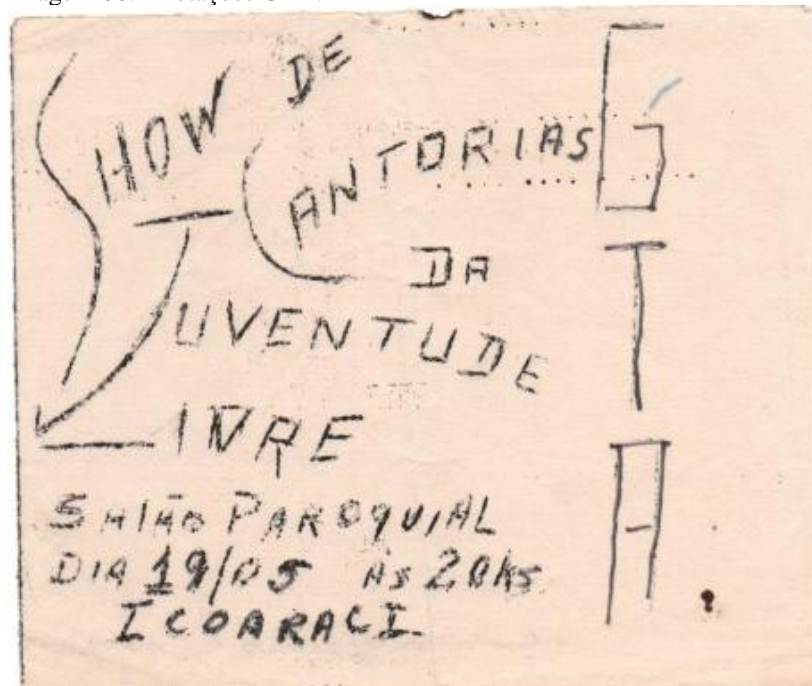 SHOW DE
CANTORIAS
DA
JUVENTUDE
LIVRE
SALÃO PAROQUIAL
DIA 19/05 ÀS 20hs.
ICOARACI.
G
T
A